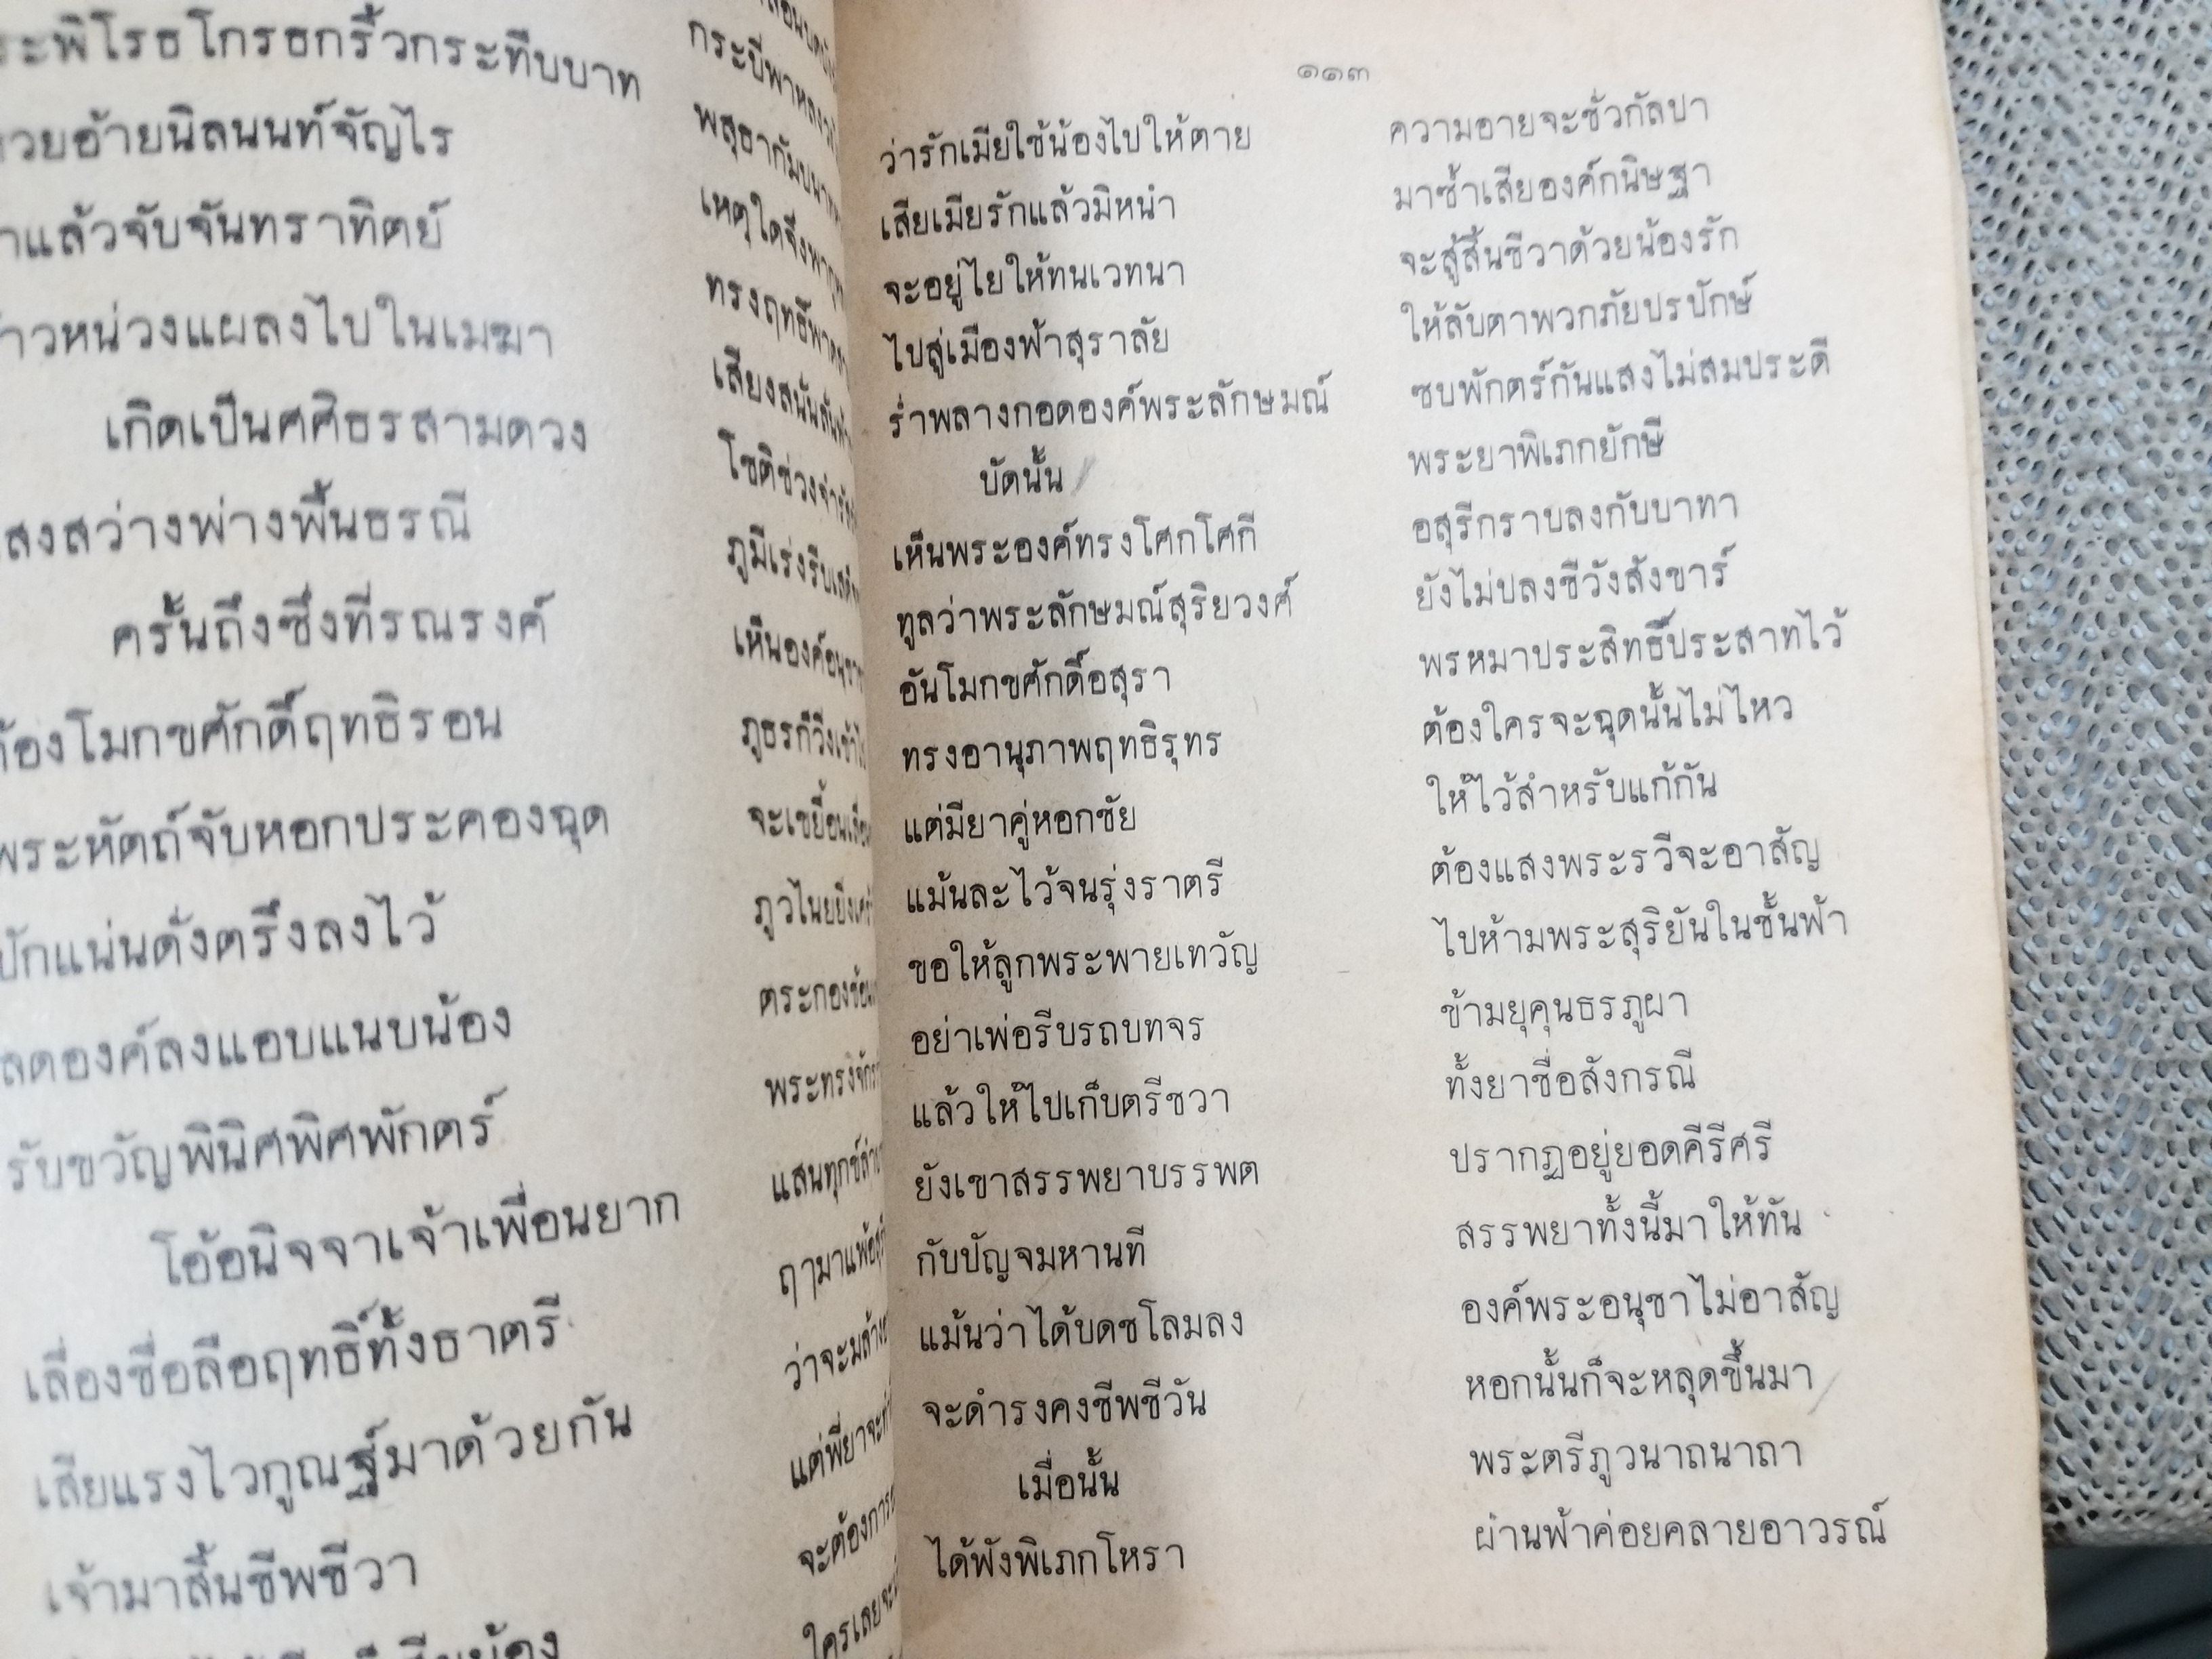 ระพิโรธโกรธกริ้วกระทืบบาท
วยอ้ายนิลนนท์จัญไร
แล้วจับจันทราทิตย์
าวหน่วงแผลงไปในเมฆา
เกิดเป็นศศิธรสามดวง
สงสว่างพ่างพื้นธรณี
ครั้นถึงซึ่งที่รณรงค์
ต้องโมกขศักดิ์ฤทธิรอน
พระหัตถ์จับหอกประคองฉุด
ปักแน่นดั่งตรึงลงไว้
ลดองค์ลงแอบแนบน้อง
รับขวัญพินิศพิศพักตร์
โอ้อนิจจาเจ้าเพื่อนยาก
เลื่องชื่อลือฤทธิ์ทั้งธาตรี
เสียแรงไวกูณฐ์มาด้วยกัน
เจ้ามาสิ้นชีพชีวา
กระบี่พาหลง
พสุธากัมปนา
เหตุใดจึงพา
ทรงฤทธิ์พา
เสียงสนั่น
โชติช่วง
ภูมีเร่งรีบ
เห็นองค์อนุชา
ภูธรก็วิ่งเข้า
จะเขยื้อน
ภูวไนย
ตระกอง
พระทรงจักร
แสนทุกข์
ฤามาแพ้
ว่าจะมล้าง
แต่พี่ยาจะ
จะต้องการ
ใครเลยจะ
๑๑๓
ว่ารักเมียใช้น้องไปให้ตาย ความอายจะชั่วกัลปา
เสียเมียรักแล้วมิหนำ มาซ้ำเสียองค์กนิษฐา
จะอยู่ไยให้ทนเวทนา จะสู้สิ้นชีวาด้วยน้องรัก
ไปสู่เมืองฟ้าสุราลัย ให้ลับตาพวกภัยปรปักษ์
ร่ำพลางกอดองค์พระลักษมณ์ ซบพักตร์กันแสงไม่สมประดี
บัดนั้น พระยาพิเภกยักษี
เห็นพระองค์ทรงโศกโศกี อสุรีกราบลงกับบาทา
ทูลว่าพระลักษมณ์สุริยวงศ์ ยังไม่ปลงชีวังสังขาร์
อันโมกขศักดิ์อสุรา พรหมาประสิทธิ์ประสาทไว้
ทรงอานุภาพฤทธิรุทร ต้องใครจะฉุดนั้นไม่ไหว
แต่มียาคู่หอกชัย ให้ไว้สำหรับแก้กัน
แม้นละไว้จนรุ่งราตรี ต้องแสงพระรวีจะอาสัญ
ขอให้ลูกพระพายเทวัญ ไปห้ามพระสุริยันในชั้นฟ้า
อย่าเพ่อรีบรถบทจร ข้ามยุคุนธรภูผา
แล้วให้ไปเก็บตรีชวา ทั้งยาชื่อสังกรณี
ยังเขาสรรพยาบรรพต ปรากฏอยู่ยอดคีรีศรี
กับปัญจมหานที สรรพยาทั้งนี้มาให้ทัน
แม้นว่าได้บดชโลมลง องค์พระอนุชาไม่อาสัญ
จะดำรงคงชีพชีวัน หอกนั้นก็จะหลุดขึ้นมา
เมื่อนั้น พระตรีภูวนาถนาถา
ได้ฟังพิเภกโหรา ผ่านฟ้าค่อยคลายอาวรณ์